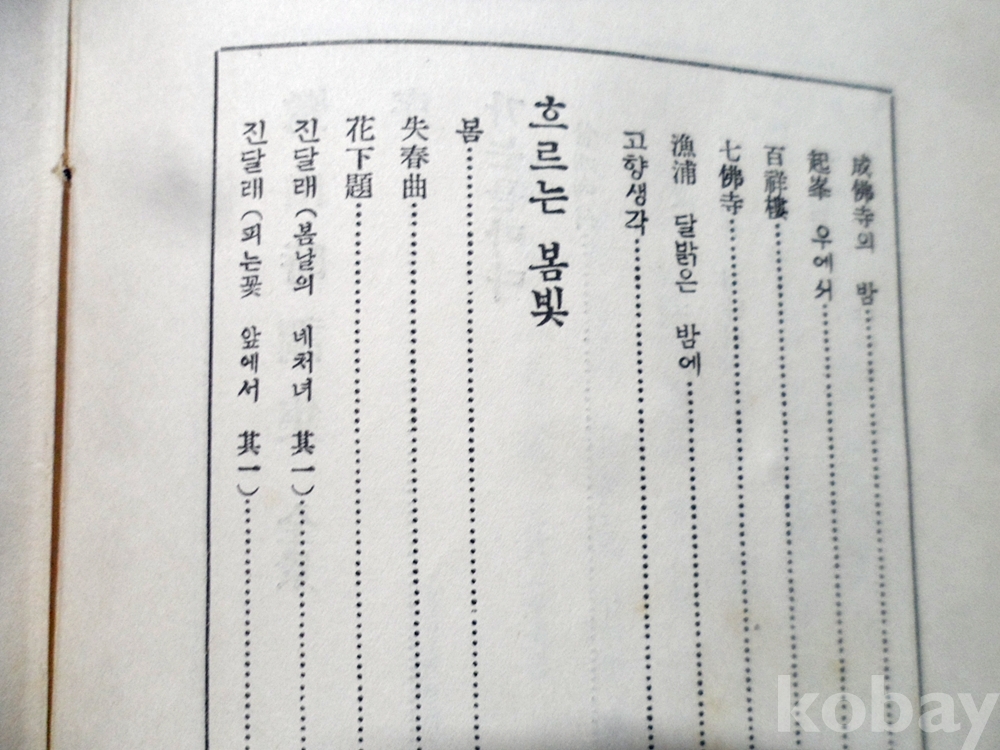 成佛寺의 밤
起峯 우에서
百祥樓
七佛寺
漁浦 달밝은 밤에
고향생각
흐르는 봄빛
봄
失春曲
花下題
진달래(봄날의 네처녀 其一)
진달래(피는꽃 앞에서 其一)
kobay